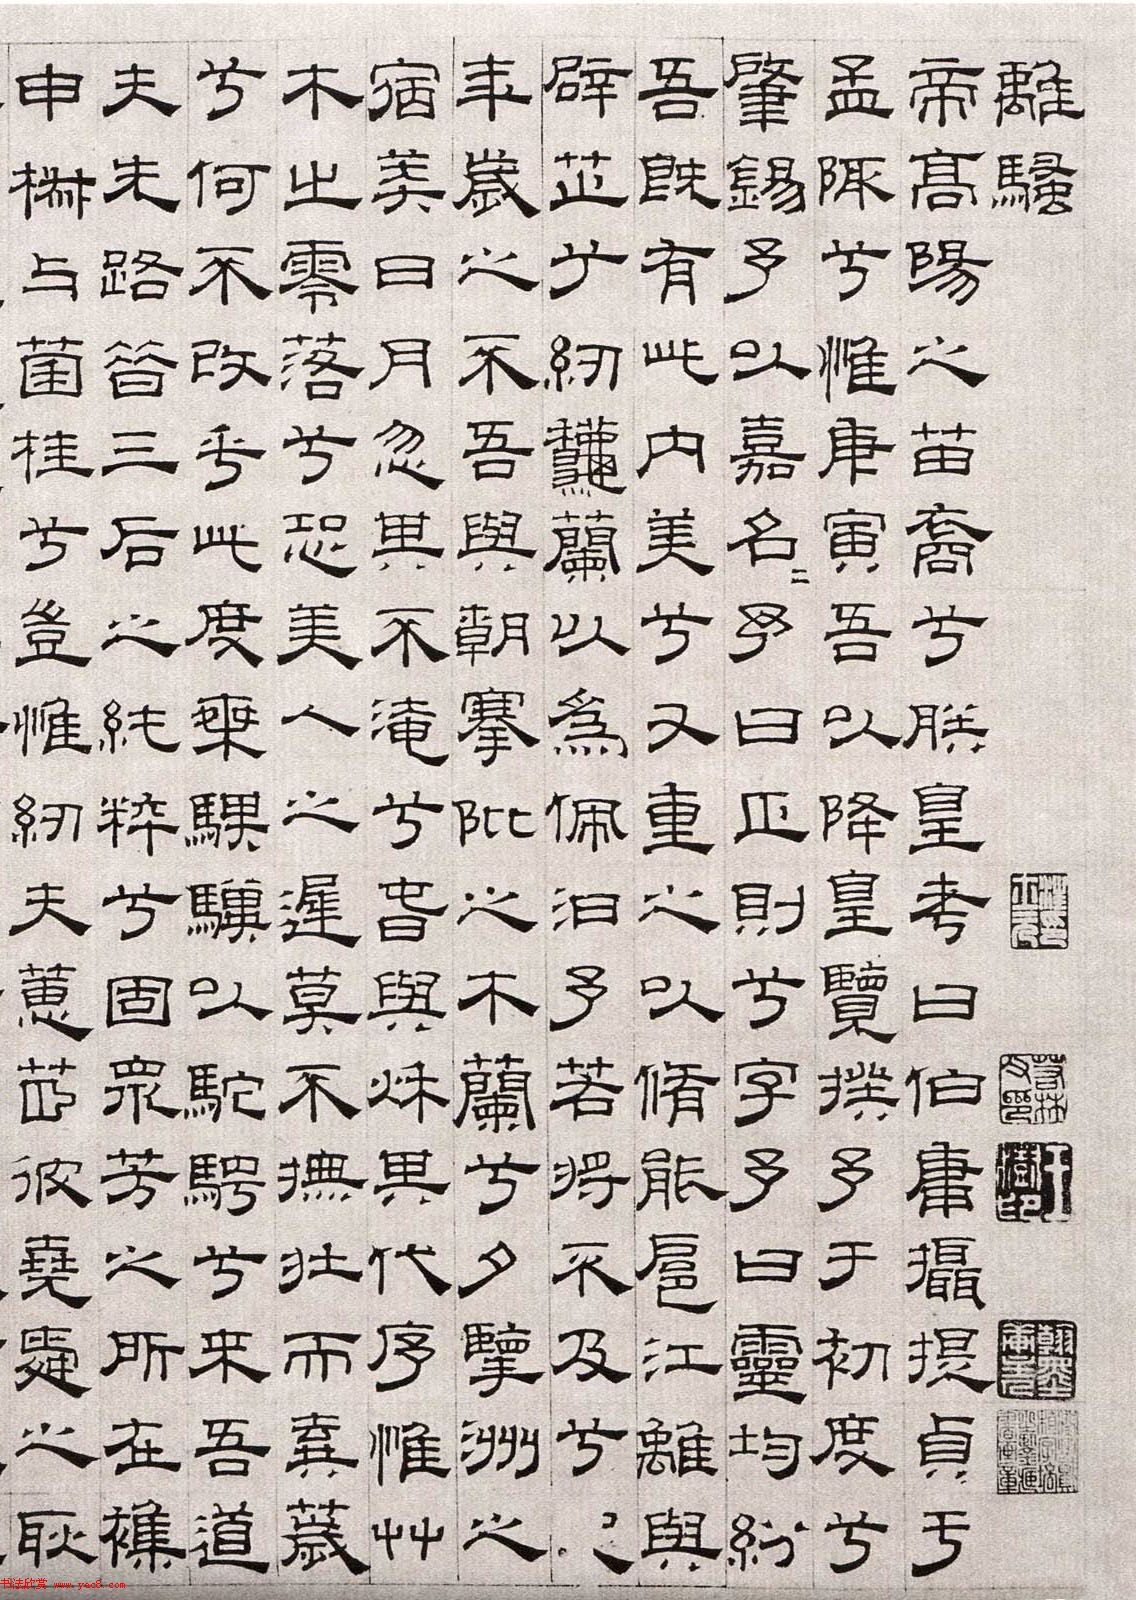 離騷
帝高陽之苗裔兮朕皇考曰伯庸攝提貞于
孟陬兮惟庚寅吾以降皇覽揆予于初度兮
肇錫予以嘉名二予曰正則兮字予曰靈均紛
吾既有此內美兮又重之以脩能扈江離與
辟芷兮紉龝蘭以為佩汩予若將不及兮
年歲之不吾與朝搴阰之木蘭兮夕擥洲之
宿莽日月忽其不淹兮春與秌其代序惟艸
木之零落兮恐美人之遲莫不撫壯而棄薉
兮何不改乎此度椉騏驥以駝騁兮来吾道
夫先路昔三后之純粹兮固眾芳之所在襍
申椒与菌桂兮豈惟紉夫蕙茝彼堯舜之耿
书法欣赏 www.yac8.com